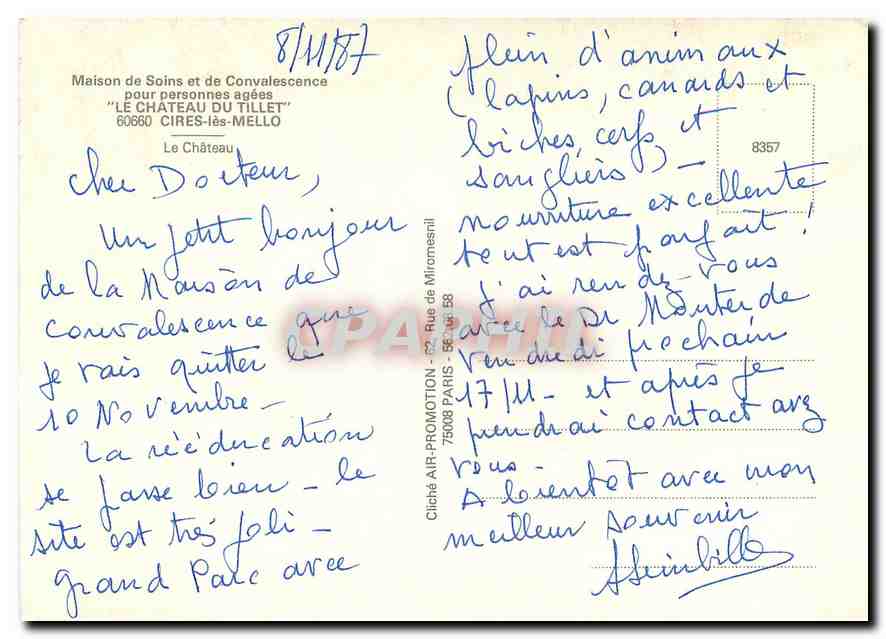 8/11/87
Maison de Soins et de Convalescence
pour personnes agées
"LE CHATEAU DU TILLET"
60660 CIRES-lès-MELLO
Le Château
Cher Docteur,
Un petit bonjour
de la Maison de
convalescence que
je vais quitter le
10 Novembre -
La rééducation
se passe bien - le
site est très joli -
grand Parc avec
plein d'animaux
(lapins, canards et
biches, cerfs et
sangliers) -
nourriture excellente
tout est parfait !
J'ai rendez-vous
avec le Dr Monter de
Vendredi prochain
17/11 - et après je
prendrai contact avec
vous -
A bientôt avec mon
meilleur souvenir
8357
Cliché AIR-PROMOTION - 62, Rue de Miromesnil
75008 PARIS - 58
CPAPHIL